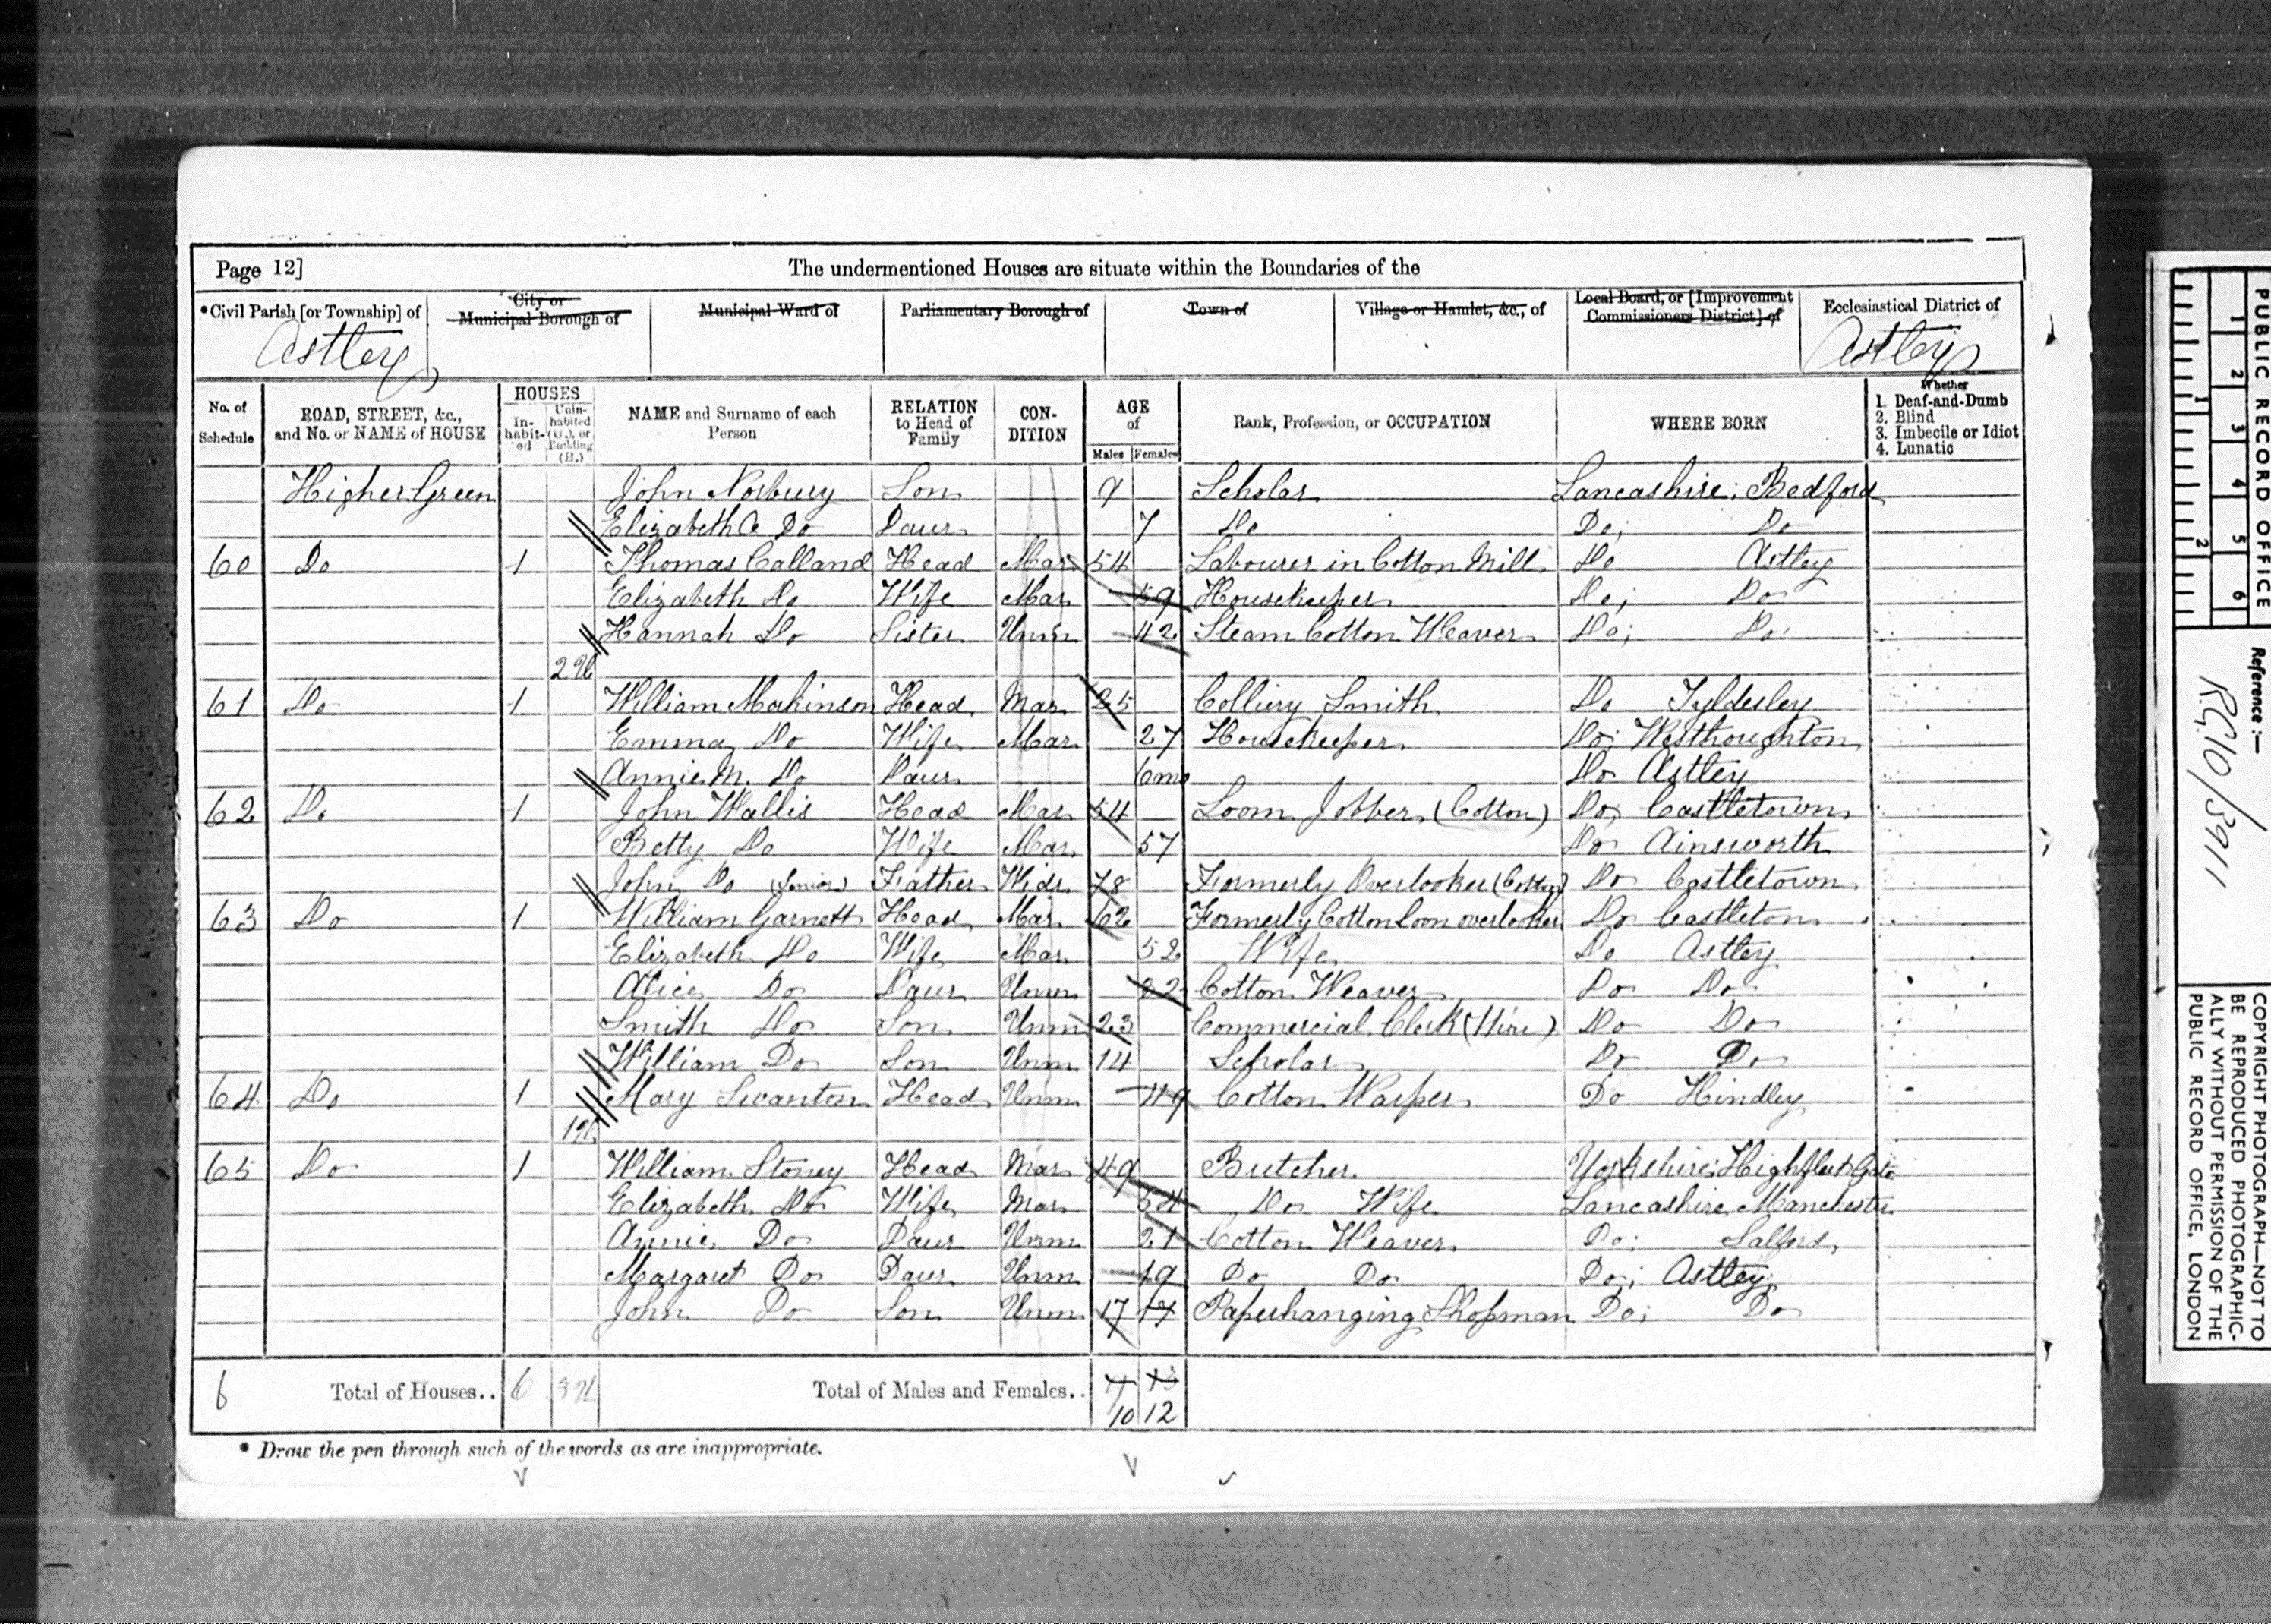 Page 12]
The undermentioned Houses are situate within the Boundaries of the
*Civil Parish [or Township] of
City or Municipal Borough of
Municipal Ward of
Parliamentary Borough of
Town of
Village or Hamlet, &c., of
Local Board, or [Improvement Commissioners District] of
Ecclesiastical District of
Astley
Astley
No. of Schedule
ROAD, STREET, &c., and No. or NAME of HOUSE
HOUSES
In-habit-ed
Unin-habited (U.), or Building (B.)
NAME and Surname of each Person
RELATION to Head of Family
CON-DITION
AGE of
Males
Females
Rank, Profession, or OCCUPATION
WHERE BORN
Whether
1. Deaf-and-Dumb
2. Blind
3. Imbecile or Idiot
4. Lunatic
Higher Green John Norbury Son 9 Scholar Lancashire; Bedford
Elizabeth A Do Daur 7 Do Do; Do
60 Do 1 Thomas Calland Head Mar 54 Labourer in Cotton Mill Do Astley
Elizabeth Do Wife Mar 59 Housekeeper Do; Do
Hannah Do Sister Unm 42 Steam Cotton Weaver Do; Do
61 Do 1 William Makinson Head Mar 25 Colliery Smith Do Tyldesley
Emma Do Wife Mar 27 Housekeeper Do; Westhoughton
Annie M. Do Daur 6mo Do Astley
62 Do 1 John Wallis Head Mar 54 Loom Jobber (Cotton) Do Castletown
Betty Do Wife Mar 57 Do Ainsworth
John Do (Senior) Father Widr 78 Formerly Overlooker (Cotton) Do Castletown
63 Do 1 William Garnett Head Mar 62 Formerly Cotton Loom overlooker Do Castleton
Elizabeth Do Wife Mar 52 Wife Do Astley
Alice Do Daur Unm 22 Cotton Weaver Do Do
Smith Do Son Unm 23 Commercial Clerk Do Do
William Do Son Unm 14 Scholar Do Do
64 Do 1 Mary Swanton Head Unm 49 Cotton Warper Do Hindley
65 Do 1 William Stoney Head Mar 49 Butcher Yorkshire;
Elizabeth Do Wife Mar 54 Do Wife Lancashire Manchester
Annie Do Daur Unm 21 Cotton Weaver Do; Salford
Margaret Do Daur Unm 19 Do Do Do; Astley
John Do Son Unm 17 17 Paperhanging Shopman Do; Do
6 Total of Houses.. 6
Total of Males and Females.. 11 13
10 12
* Draw the pen through such of the words as are inappropriate.
1 2 3 4 5 6
1 2
PUBLIC RECORD OFFICE
Reference :—
RG10/3911
COPYRIGHT PHOTOGRAPH—NOT TO
BE REPRODUCED PHOTOGRAPHIC-
ALLY WITHOUT PERMISSION OF THE
PUBLIC RECORD OFFICE, LONDON